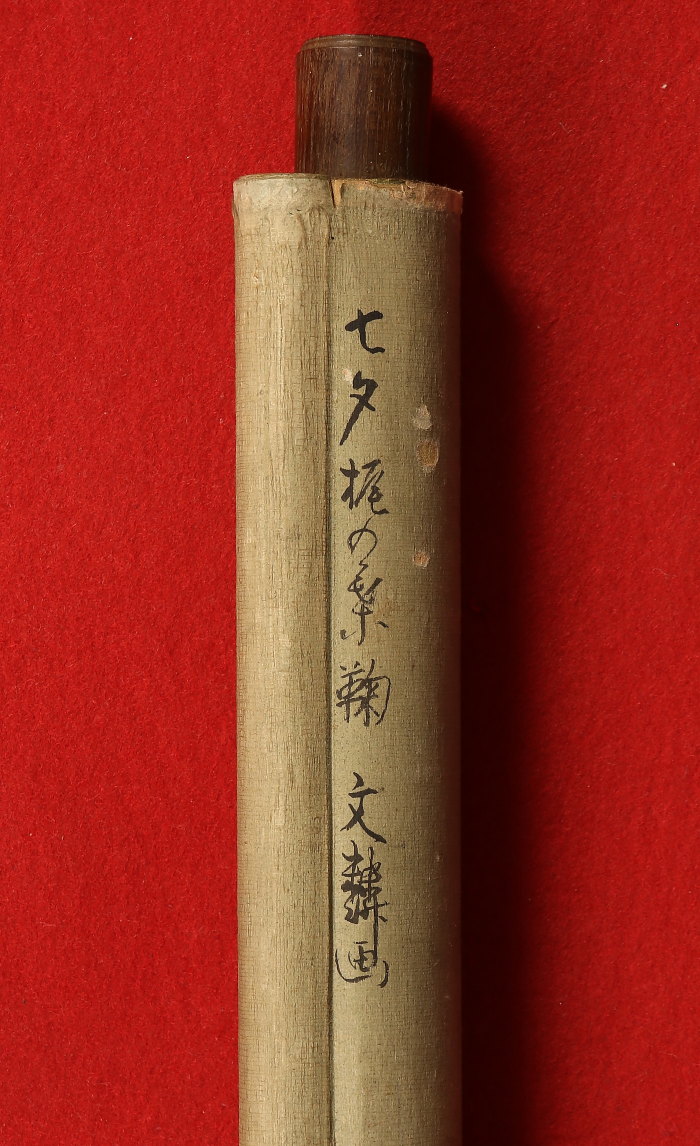 七夕梶の葉鞠 文麟画